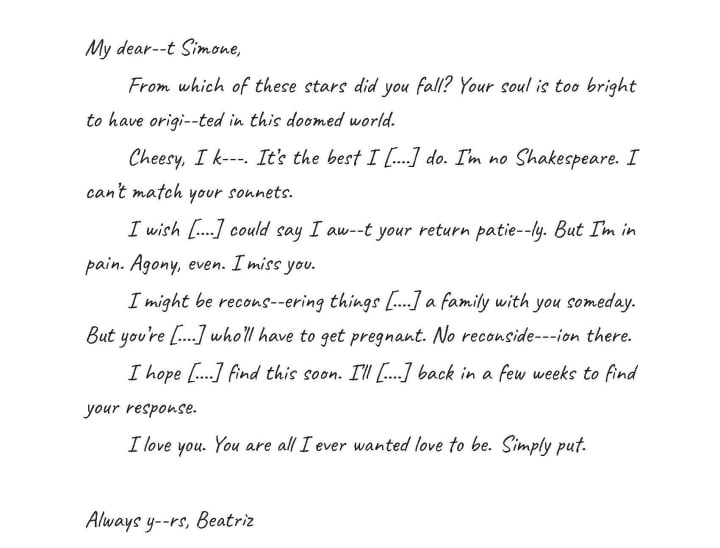 My dear--t Simone,
From which of these stars did you fall? Your soul is too bright
to have origi--ted in this doomed world.
Cheesy, I k---. It's the best I [....] do. I'm no Shakespeare. I
can't match your sonnets.
I wish [....] could say I aw--t your return patie--ly. But I'm in
pain. Agony, even. I miss you.
I might be recons--ering things [....] a family with you someday.
But you're [....] who'll have to get pregnant. No reconside---ion there.
I hope [....] find this soon. I'll [....] back in a few weeks to find
your response.
I love you. You are all I ever wanted love to be. Simply put.
Always y--rs, Beatriz